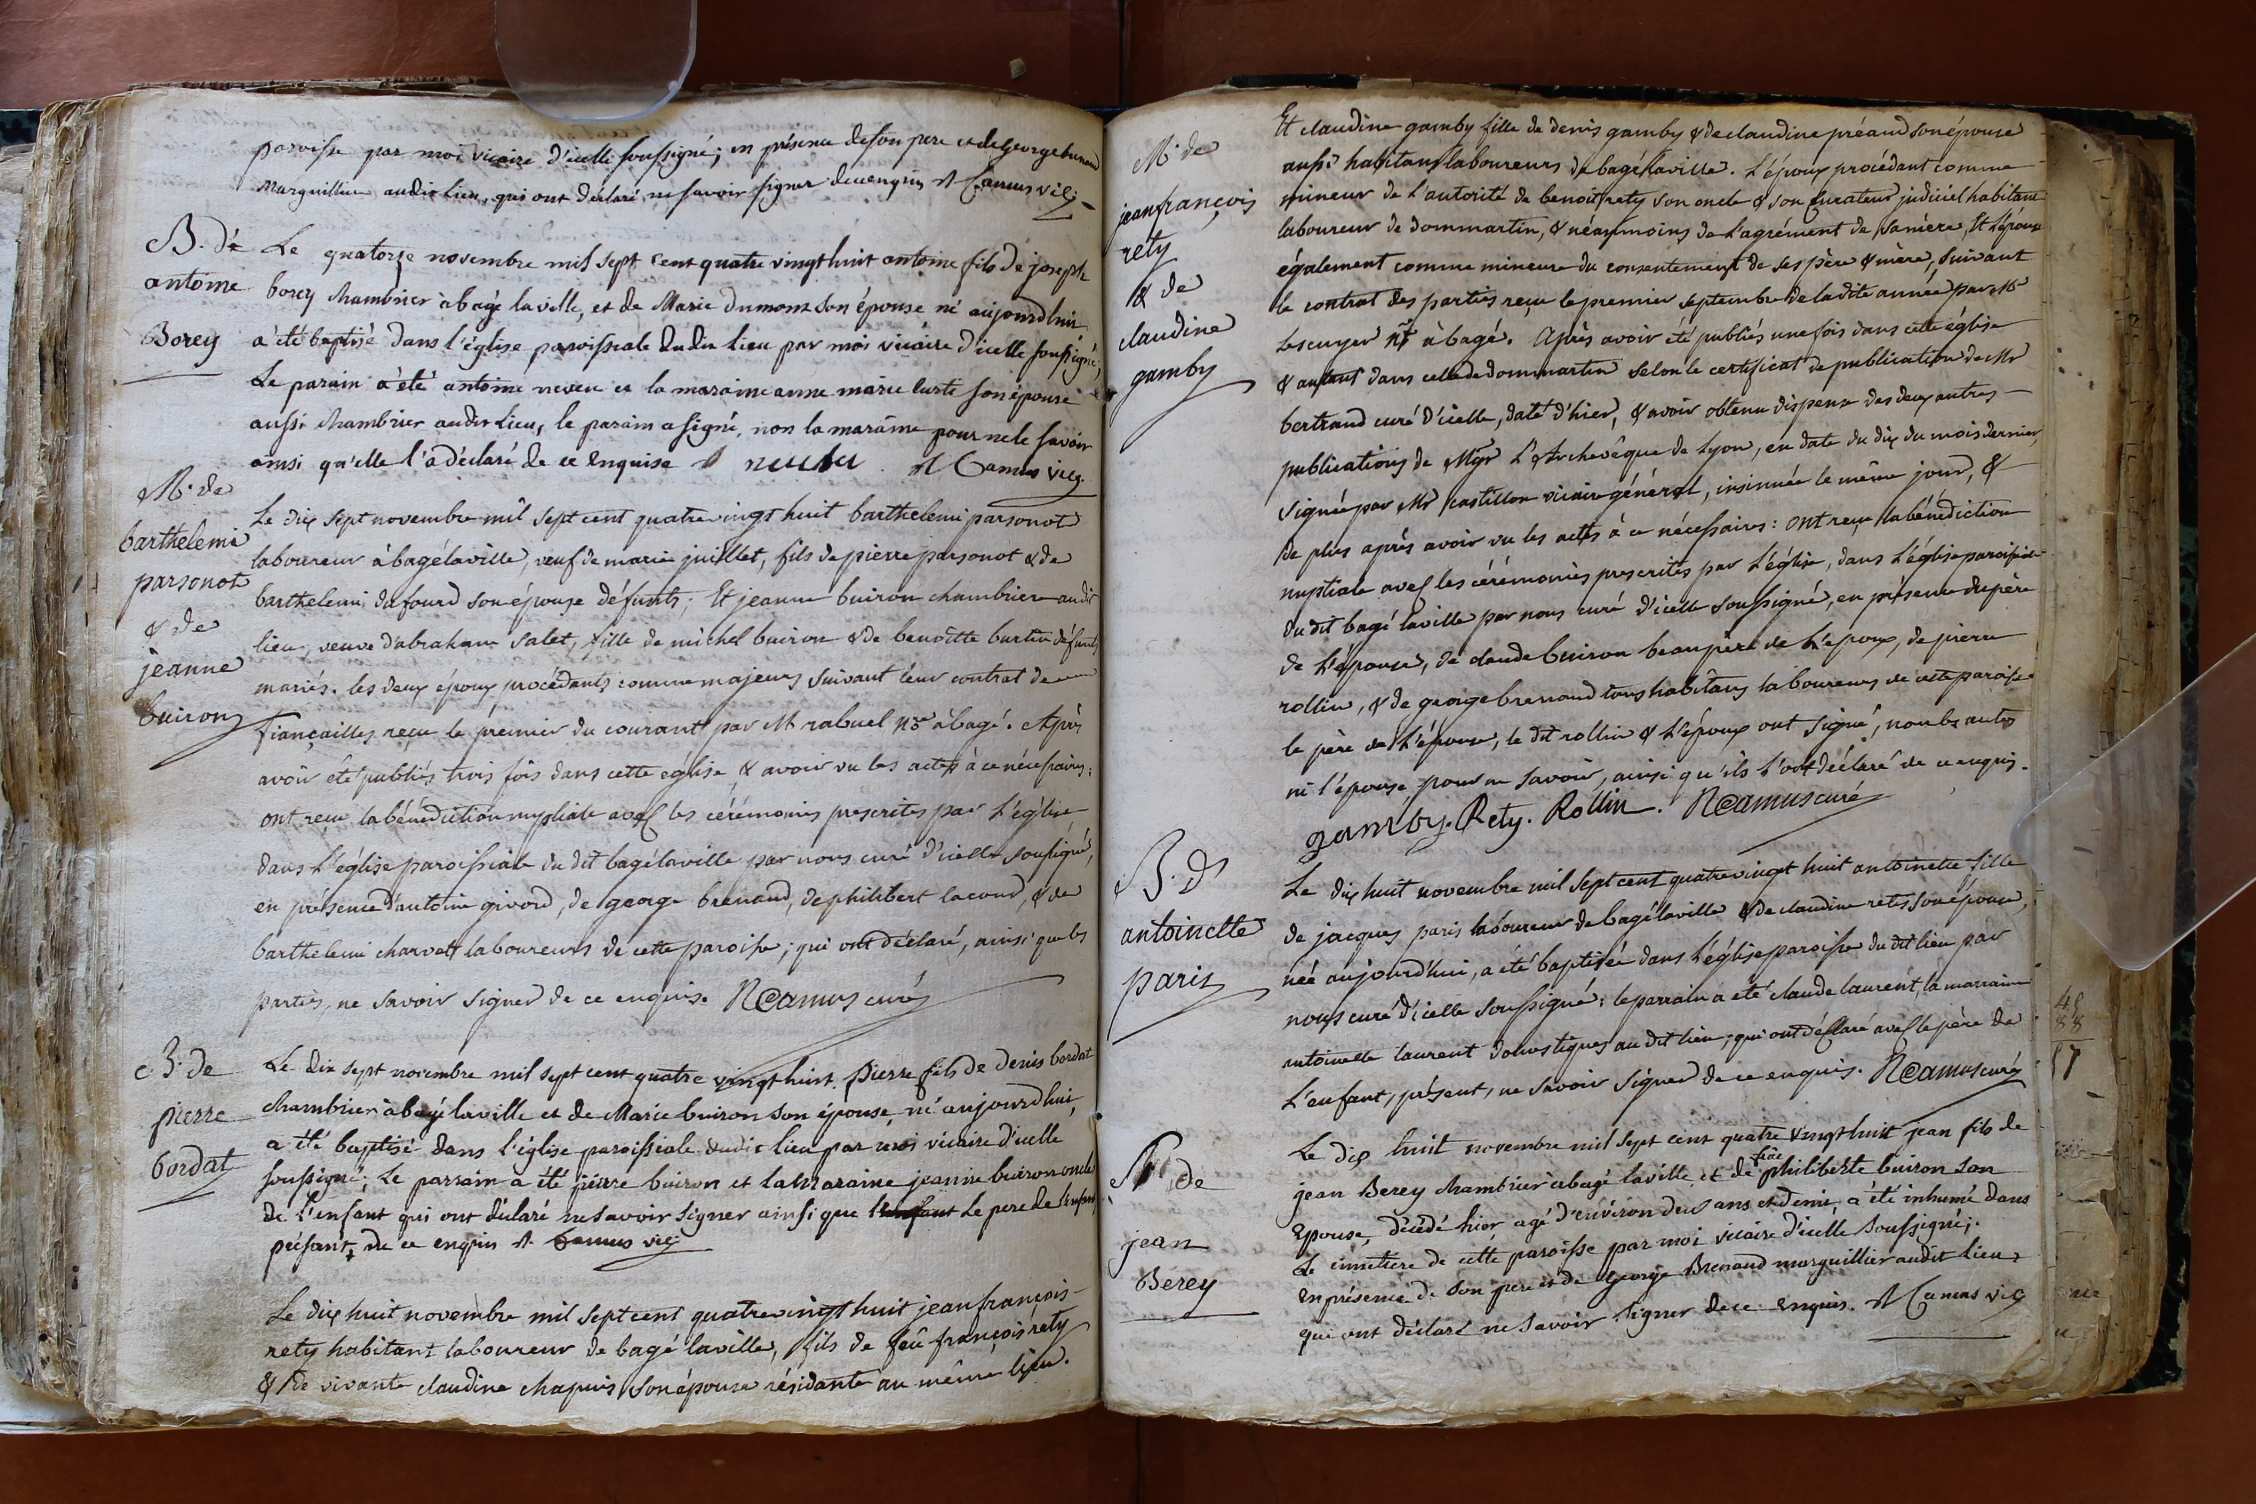 paroisse par moi vicaire d'icelle soussigné; en présence de son pere et de george brenand
Marguillier audit lieu, qui ont déclaré ne savoir signer de ce enquis A Camus vic:
B. de
antoine
Borey
Le quatorze novembre mil sept cent quatre vingt huit antoine fils de joseph
borey chambrier à bagé laville, et de Marie Dumont son épouse né aujourdhui
a été baptisé dans l'église paroissiale dudit lieu par moi vicaire d'icelle soussigné;
Le parain a été antoine neveu et la maraine anne marie son épouse
aussi chambrier audit lieu, le parain a signé, non la maraine pour ne le savoir
ainsi qu'elle l'a déclaré de ce enquise A neveu A Camus vicg.
M. de
barthelemi
parsonot
& de
jeanne
buiron
Le dix sept novembre mil sept cent quatre vingt huit barthelemi parsonot
laboureur à bagé laville, veuf de marie juillet, fils de pierre parsonot & de
barthelemi dafourd son épouse défunts; Et jeanne buiron chambriere audit
lieu, veuve d'abraham salet, fille de michel buiron & de benoitte burtin défunts
mariés. les deux époux procédants comme majeurs suivant leur contrat de
fiançailles reçu le premier du courant par Mr rabuel nre à bagé. Après
avoir été publiés trois fois dans cette église & avoir vu les actes à ce nécessaires:
ont reçu la bénédiction nuptiale avec les cérémonies prescrites par l'église
dans l'église paroissiale du dit bagé laville par nous curé d'icelle soussigné,
en présence d'antoine givord, de george brenand, de philibert lacour, & de
barthelemi charvet laboureurs de cette paroisse; qui ont déclaré, ainsi que les
parties, ne savoir signer de ce enquis. N Camus curé
B. de
pierre
bordat
Le dix sept novembre mil sept cent quatre vingt huit. pierre fils de denis bordat
chambrier à bagé laville et de Marie buiron son épouse né aujourdhui,
a été baptisé dans l'église paroissiale dudit lieu par moi vicaire d'icelle
soussigné; Le parrain a été pierre buiron et la Maraine jeanne buiron oncle
de l'enfant qui ont déclaré ne savoir signer ainsi que l'enfant Le pere de l'enfant,
présent, de ce enquis A. Camus vicg
Le dix huit novembre mil sept cent quatre vingt huit jean françois
rety habitant laboureur de bagé laville, fils de feu françois rety
& de vivante claudine chapuis son épouse résidante au même lieu.
M. de
jean françois
rety
& de
claudine
gamby
Et claudine gamby fille de denis gamby & de claudine préaud son épouse
aussi habitans laboureurs de bagé laville. L'époux procédant comme
mineur de l'autorité de benoit rety son oncle & son curateur judiciel habitant
laboureur de dommartin, & néanmoins de l'agrément de sa mère, Et l'épouse
également comme mineure du consentement de ses père & mère, suivant
le contrat des parties reçu le premier septembre de la dite année par Mr
Lescuyer nre à bagé. Après avoir été publiés une fois dans cette église
& autant dans celle de dommartin selon le certificat de publication de Mr
bertrand curé d'icelle, daté d'hier, & avoir obtenu dispense des deux autres
publications de Mgr L'Archevêque de Lyon, en date du dix du mois dernier,
signée par Mr castillon vicaire général, insinuée le même jour, &
de plus après avoir vu les actes à ce nécessaires: ont reçu la bénédiction
nuptiale avec les cérémonies prescrites par l'église, dans l'église paroissiale
du dit bagé laville par nous curé d'icelle soussigné, en présence du père
de l'épouse, de claude buiron beaupère de l'époux, de pierre
rollin, & de george brenand tous habitans laboureurs de cette paroisse
le père de l'épouse, le dit rollin & l'époux ont signé, non les autres
ni l'épouse pour ne savoir, ainsi qu'ils l'ont déclaré de ce enquis.
gamby. Rety. Rollin. N Camus curé
B. D
antoinette
paris
Le dix huit novembre mil sept cent quatre vingt huit antoinette fille
de jacques paris laboureur de bagé laville & de claudine retis son épouse,
née aujourd'hui, a été baptisée dans l'église paroisse du dit lieu par
nous curé d'icelle soussigné: le parrain a été claude laurent, la marraine
antoinette laurent domestiques au dit lieu; qui ont déclaré avec le père de
l'enfant, présent, ne savoir signer de ce enquis. N Camus curé
de
jean
Berey
Le dix huit novembre mil sept cent quatre vingt huit jean fils de
jean Berey chambrier à bagé laville, et de feue philiberte buiron son
Epouse, décédé hier agé d'environ deux ans et demi, a été inhumé dans
Le cimetiere de cette paroisse par moi vicaire d'icelle soussigné;
En présence de son pere et de George Brenaud marguillier audit lieu,
qui ont déclaré ne savoir signer de ce enquis. A Camus vicg
48
88
17